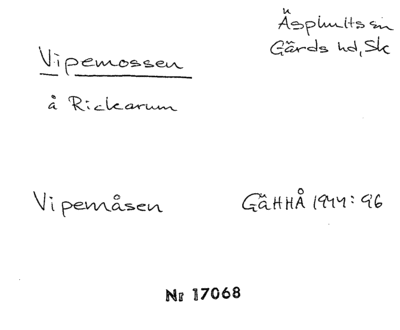 Vipemossen
Äsphults sn
Gärds hd, Sk
å Rickarum
Vipemåsen GäHHÅ 1944: 96
Nr 17068